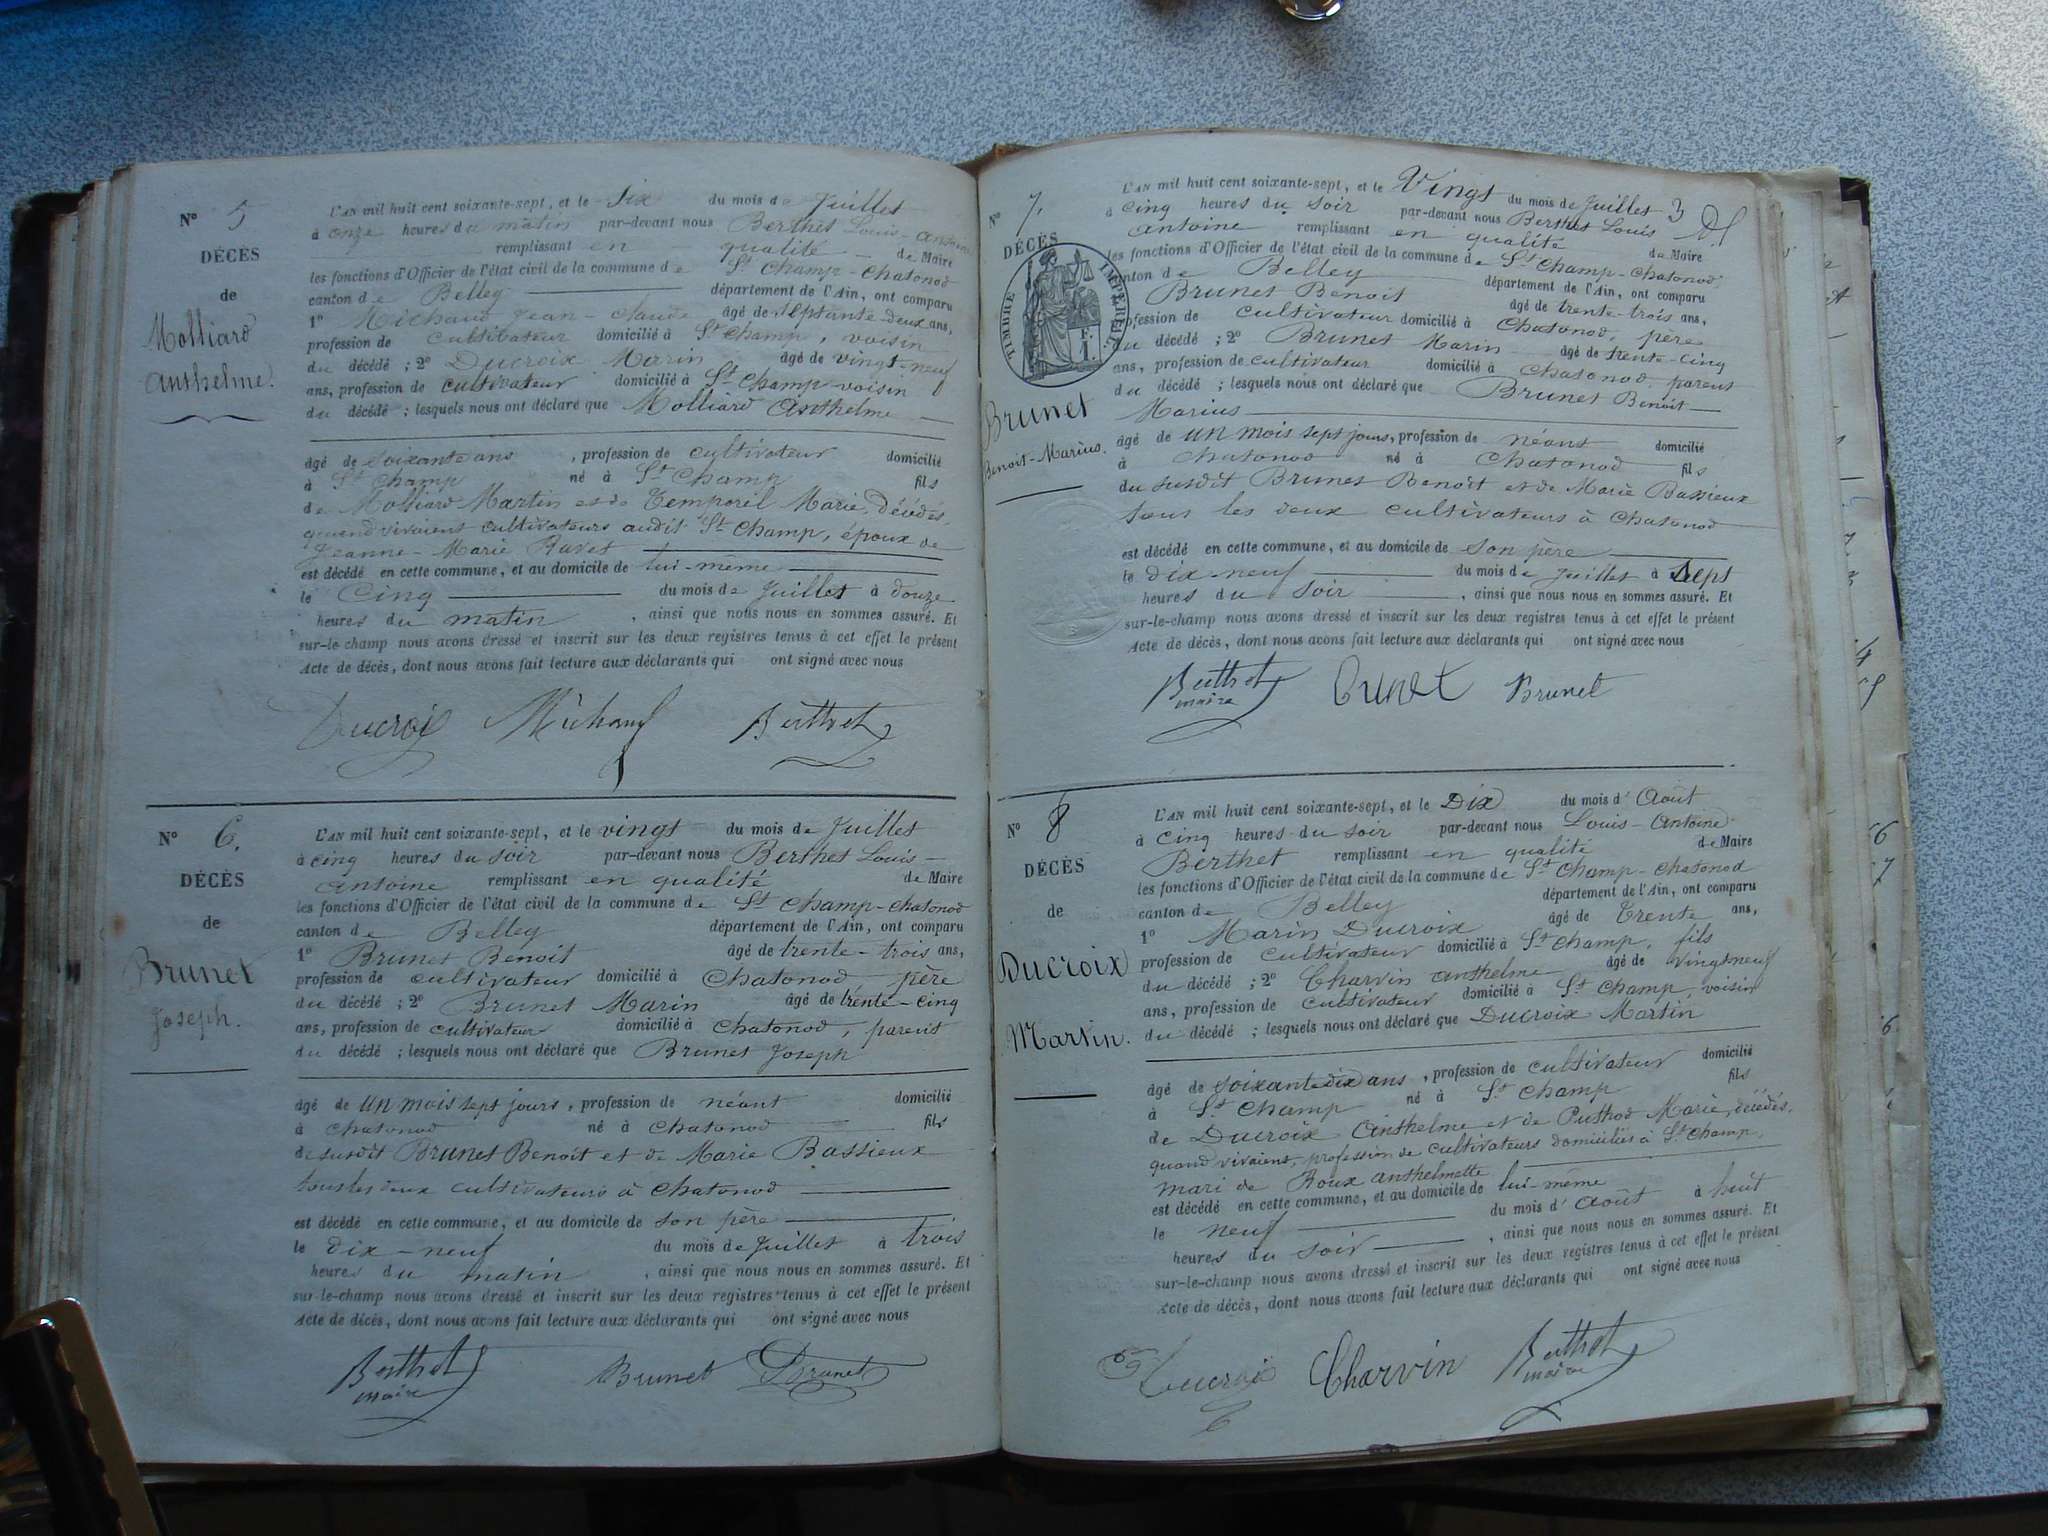 N° 5
DÉCÈS
de
Molliard
Anthelme.
L'AN mil huit cent soixante-sept, et le Six du mois de Juillet
à onze heures du matin par-devant nous Berthet Louis-Antoine
remplissant en qualité de Maire
les fonctions d'Officier de l'état civil de la commune de St Champ-Chatonod
canton de Belley département de l'Ain, ont comparu
1° Michaud Jean-Claude âgé de septante-deux ans,
profession de cultivateur domicilié à St Champ, voisin
du décédé ; 2° Ducroix Marin âgé de vingt-neuf
ans, profession de cultivateur domicilié à St Champ voisin
du décédé ; lesquels nous ont déclaré que Molliard Anthelme
âgé de soixante ans, profession de cultivateur domicilié
à St Champ né à St Champ fils
de Molliard Martin et de Temporil Marie, décédés,
quand vivaient cultivateurs audit St Champ, époux de
Jeanne-Marie Ravet
est décédé en cette commune, et au domicile de lui-même
le Cinq du mois de Juillet à douze
heures du matin, ainsi que nous nous en sommes assuré. Et
sur-le-champ nous avons dressé et inscrit sur les deux registres tenus à cet effet le présent
Acte de décès, dont nous avons fait lecture aux déclarants qui ont signé avec nous
Ducroix Michaud Berthet
N° 6.
DÉCÈS
de
Brunet
Joseph.
L'AN mil huit cent soixante-sept, et le vingt du mois de Juillet
à cinq heures du soir par-devant nous Berthet Louis-
Antoine remplissant en qualité de Maire
les fonctions d'Officier de l'état civil de la commune de St Champ-Chatonod
canton de Belley département de l'Ain, ont comparu
1° Brunet Benoit âgé de trente-trois ans,
profession de cultivateur domicilié à Chatonod père
du décédé ; 2° Brunet Marin âgé de trente-cinq
ans, profession de cultivateur domicilié à Chatonod, parent
du décédé ; lesquels nous ont déclaré que Brunet Joseph
âgé de un mois sept jours, profession de néant domicilié
à Chatonod né à Chatonod fils
de susdit Brunet Benoit et de Marie Bassieux
tous les deux cultivateurs à Chatonod
est décédé en cette commune, et au domicile de son père
le dix-neuf du mois de Juillet à trois
heures du matin, ainsi que nous nous en sommes assuré. Et
sur-le-champ nous avons dressé et inscrit sur les deux registres tenus à cet effet le présent
Acte de décès, dont nous avons fait lecture aux déclarants qui ont signé avec nous
Berthet maire Brunet Brunet
N° 7.
DÉCÈS
TIMBRE IMPÉRIAL
1 F.
Brunet
Benoit-Marius.
L'AN mil huit cent soixante-sept, et le Vingt du mois de Juillet 3
à cinq heures du soir par-devant nous Berthet Louis
Antoine remplissant en qualité de Maire
les fonctions d'Officier de l'état civil de la commune de St Champ-Chatonod
canton de Belley département de l'Ain, ont comparu
Brunet Benoit âgé de trente-trois ans,
profession de cultivateur domicilié à Chatonod, père
du décédé ; 2° Brunet Marin âgé de trente-cinq
ans, profession de cultivateur domicilié à Chatonod, parent
du décédé ; lesquels nous ont déclaré que Brunet Benoit
Marius
âgé de un mois sept jours, profession de néant domicilié
à Chatonod né à Chatonod fils
du susdit Brunet Benoit et de Marie Bassieux
tous les deux cultivateurs à Chatonod
est décédé en cette commune, et au domicile de son père
le dix-neuf du mois de Juillet à Sept
heures du soir, ainsi que nous nous en sommes assuré. Et
sur-le-champ nous avons dressé et inscrit sur les deux registres tenus à cet effet le présent
Acte de décès, dont nous avons fait lecture aux déclarants qui ont signé avec nous
Berthet maire Brunet Brunet
N° 8
DÉCÈS
de
Ducroix
Martin.
L'AN mil huit cent soixante-sept, et le Dix du mois d'Août
à cinq heures du soir par-devant nous Louis-Antoine
Berthet remplissant en qualité de Maire
les fonctions d'Officier de l'état civil de la commune de St Champ-Chatonod
canton de Belley département de l'Ain, ont comparu
1° Marin Ducroix âgé de Trente ans,
profession de cultivateur domicilié à St Champ, fils
du décédé ; 2° Charvin Anthelme âgé de vingt neuf
ans, profession de cultivateur domicilié à St Champ, voisin
du décédé ; lesquels nous ont déclaré que Ducroix Martin
âgé de soixante dix ans, profession de cultivateur domicilié
à St Champ né à St Champ fils
de Ducroix Anthelme et de Puthod Marie, décédés,
quand vivaient, profession de cultivateurs domiciliés à St Champ,
mari de Roux Anthelmette
est décédé en cette commune, et au domicile de lui-même
le neuf du mois d'Août à huit
heures du soir, ainsi que nous nous en sommes assuré. Et
sur-le-champ nous avons dressé et inscrit sur les deux registres tenus à cet effet le présent
Acte de décès, dont nous avons fait lecture aux déclarants qui ont signé avec nous
Ducroix Charvin Berthet maire